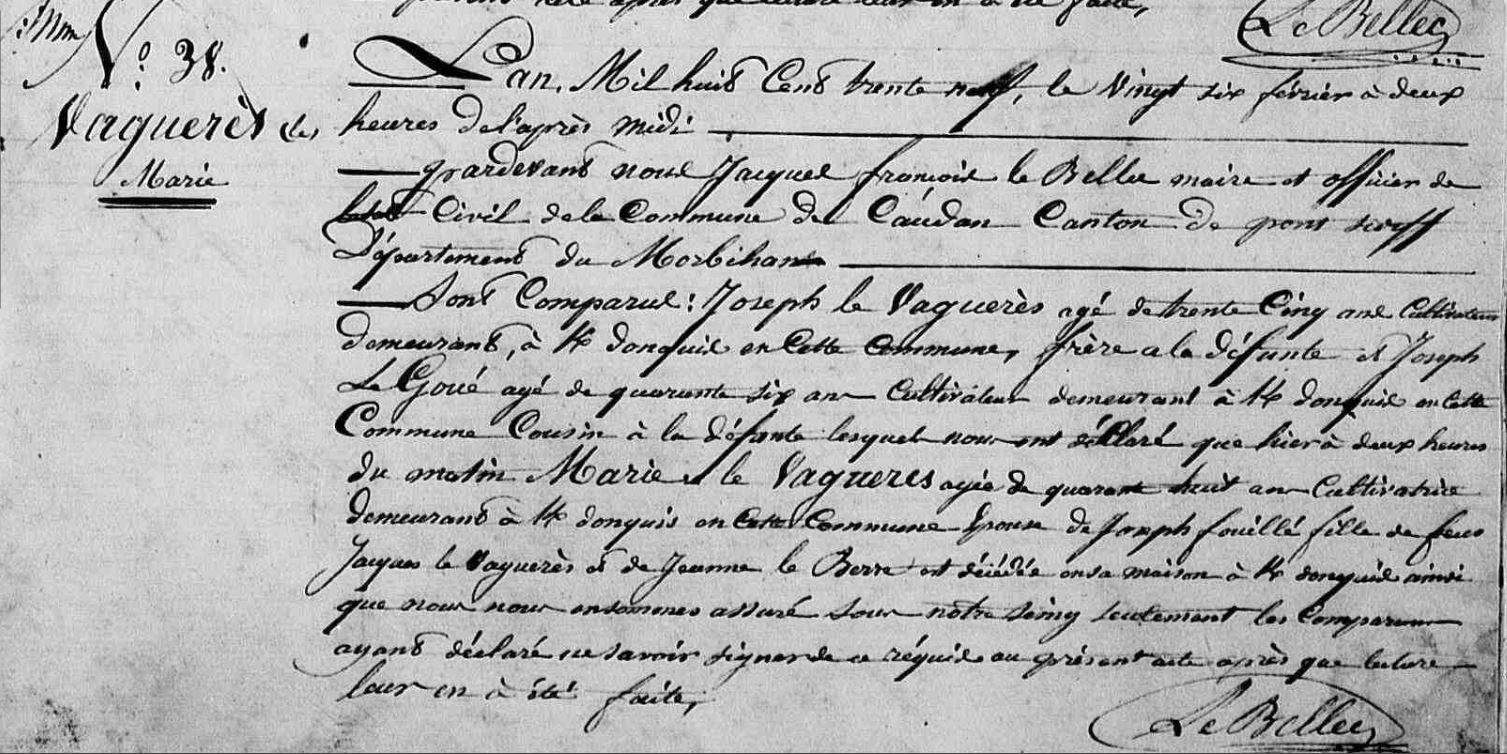 après que lecture leur en a été faite,
Le Bellec
N° 38.
Vaguerès (le)
Marie
L'an, Mil huit Cent trente neuf, le vingt six février à deux
heures de l'après midi
pardevant nous Jacques françois le Bellec maire et officier de
l'état Civil de la Commune de Caudan Canton de pont scorff
Département du Morbihan
Sont Comparus: Joseph le Vaguerès agé de trente Cinq ans Cultivateur
demeurant, à K donquis en Cette Commune, frère a la défunte et Joseph
Le Goué agé de quarante six ans Cultivateur demeurant à K donquis en Cette
Commune Cousin à la défunte lesquels nous ont déclaré que hier à deux heures
du matin Marie le Vagueres agée de quarante huit ans Cultivatrice
demeurant à K donquis en Cette Commune Epouse de Joseph fouillé fille de feus
Jacques le Vaguerès et de Jeanne le Berre est décédée en sa maison à K donquis ainsi
que nous nous en sommes assuré sous notre seing seulement les Comparans
ayant déclaré ne savoir signer de ce réquis au présent acte après que lecture
leur en à été faite,
Le Bellec